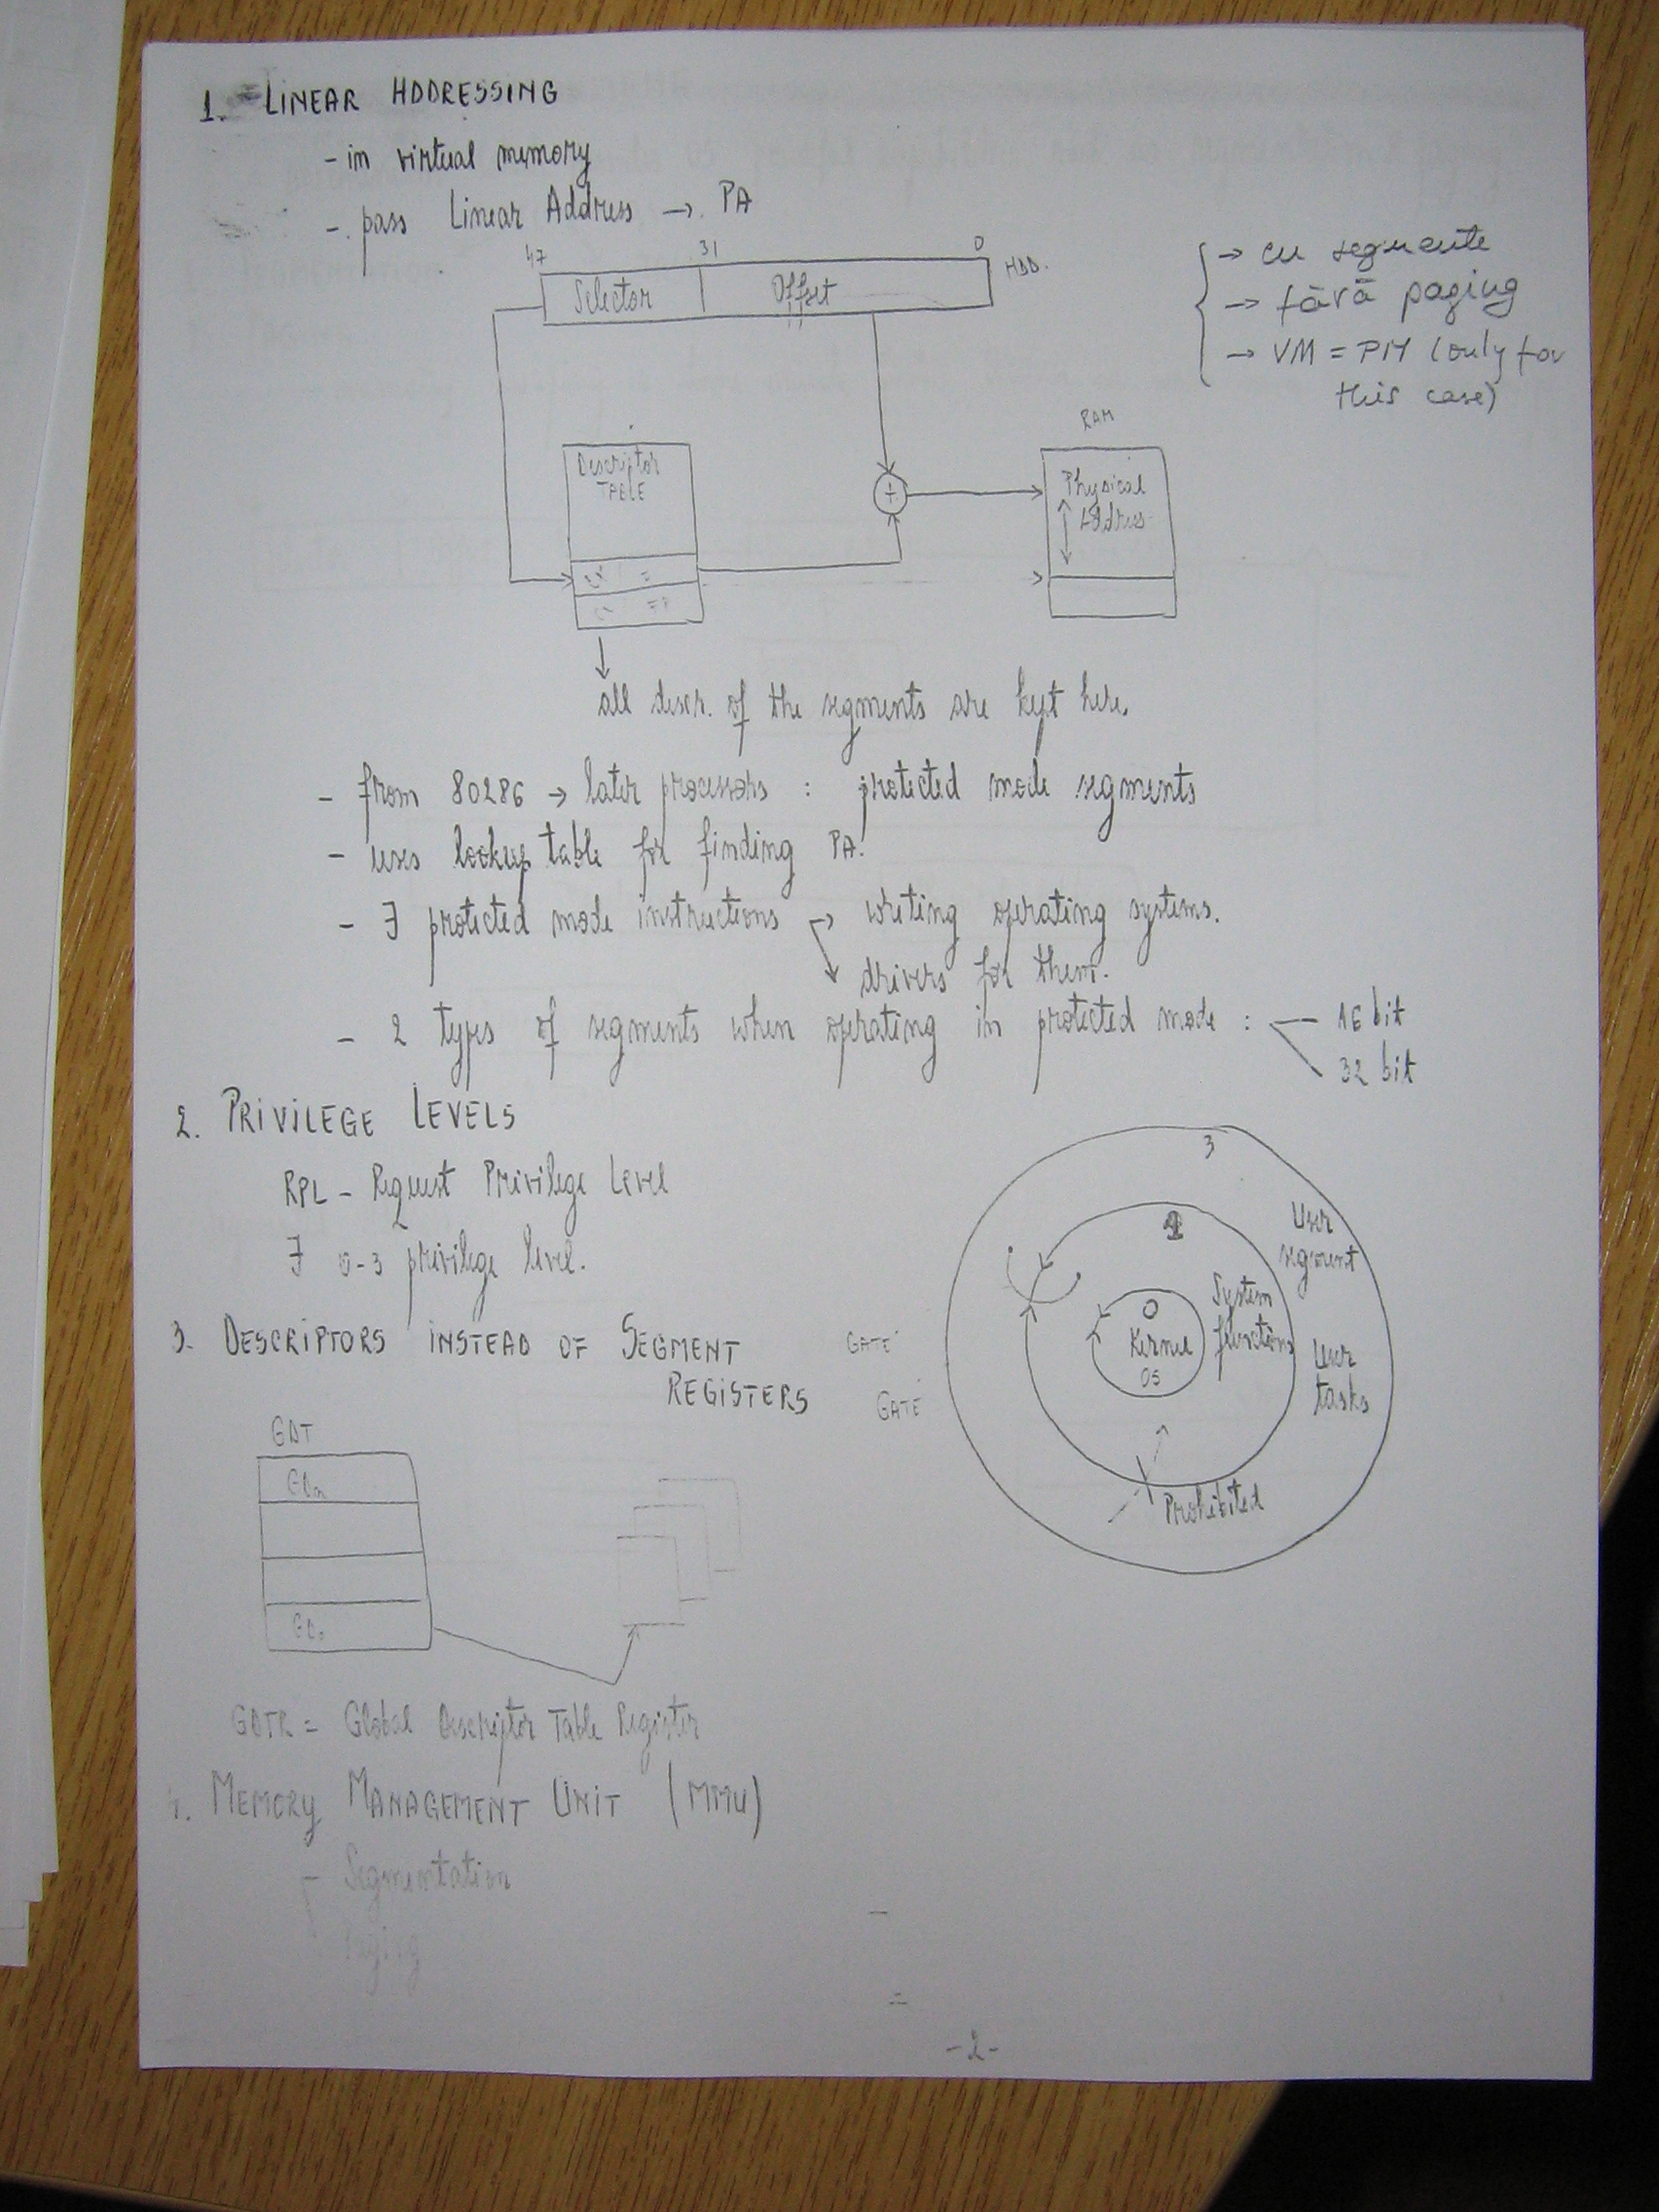 1. LINEAR ADDRESSING
- in virtual memory
- pass Linear Address → PA
47 31 0
Selector Offset HDD.
→ cu segmente
→ fără paging
→ VM = PM (only for
this case)
RAM
Descriptor
TABLE
+
Physical
Address
all descr. of the segments are kept here.
- from 80286 → later processors : protected mode segments
- uses lookup table for finding PA.
- ∃ protected mode instructions → writing operating systems.
drivers for them.
- 2 types of segments when operating in protected mode : — 16 bit
32 bit
2. PRIVILEGE LEVELS
RPL - Request Privilege Level
∃ 0-3 privilege level.
3
User
segment
1
System
functions
0
Kernel
OS
User
tasks
GATE
GATE
Prohibited
3. DESCRIPTORS INSTEAD OF SEGMENT
REGISTERS
GDT
GDn
GD0
GDTR = Global Descriptor Table Register
4. MEMORY MANAGEMENT UNIT (MMU)
- Segmentation
Paging
-2-